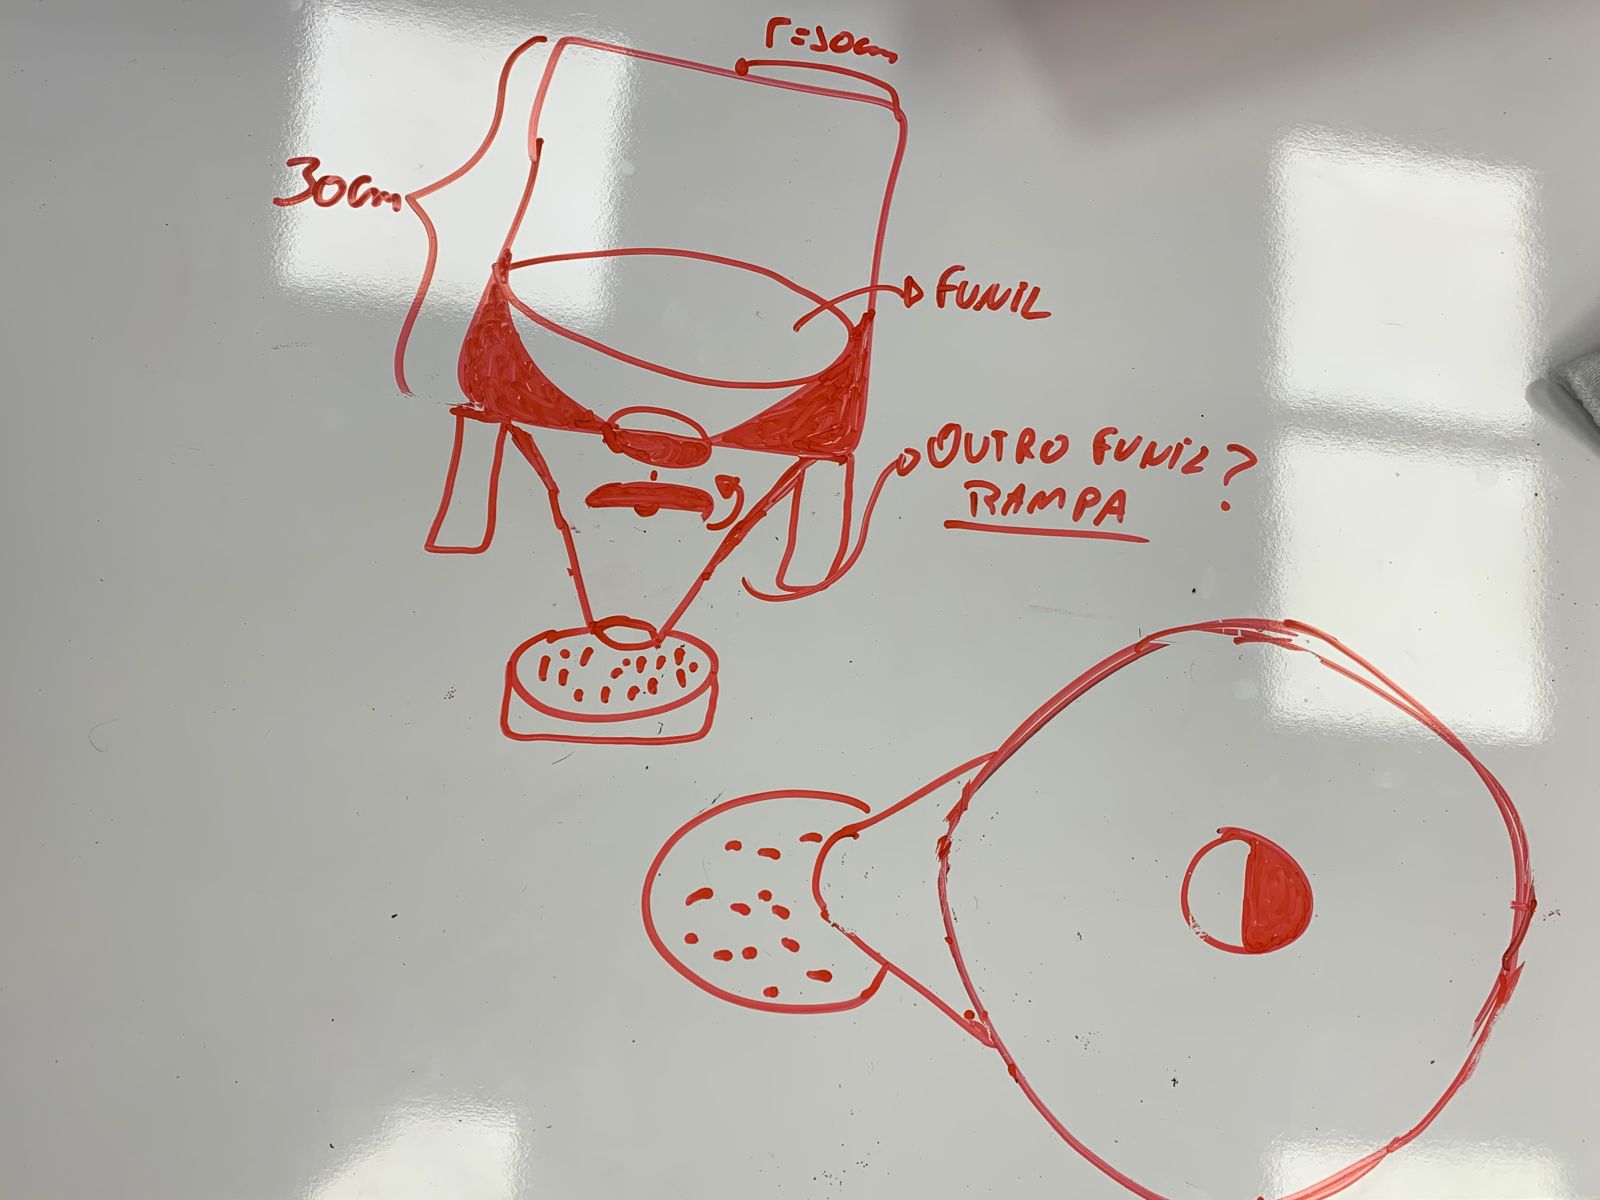 r=10cm
30cm
FUNIL
OUTRO FUNIL?
RAMPA